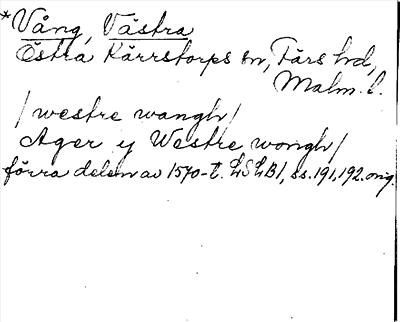 *Vång, Västra
Östra Kärrstorps sn, Färs hd,
Malm. l.
/westre wangh/
Ager y Westre wongh/
förra delen av 1570-t. LSLB1, ss. 191, 192. orig.